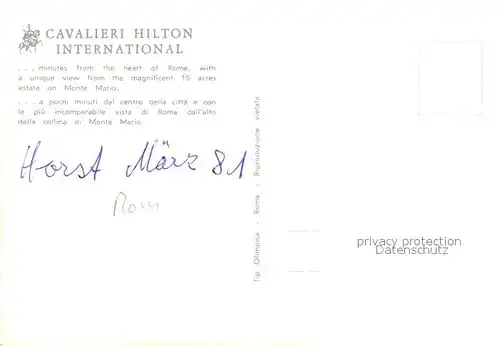 CAVALIERI HILTON
INTERNATIONAL
. . . minutes from the heart of Rome, with
a unique view from the magnificent 15 acres
estate on Monte Mario.
. . . a pochi minuti dal centro della città e con
la più incomparabile vista di Roma dall'alto
della collina di Monte Mario.
Horst März 81
Rom
Tip. Olimpica - Roma - Riproduzione vietata
privacy protection
Datenschutz